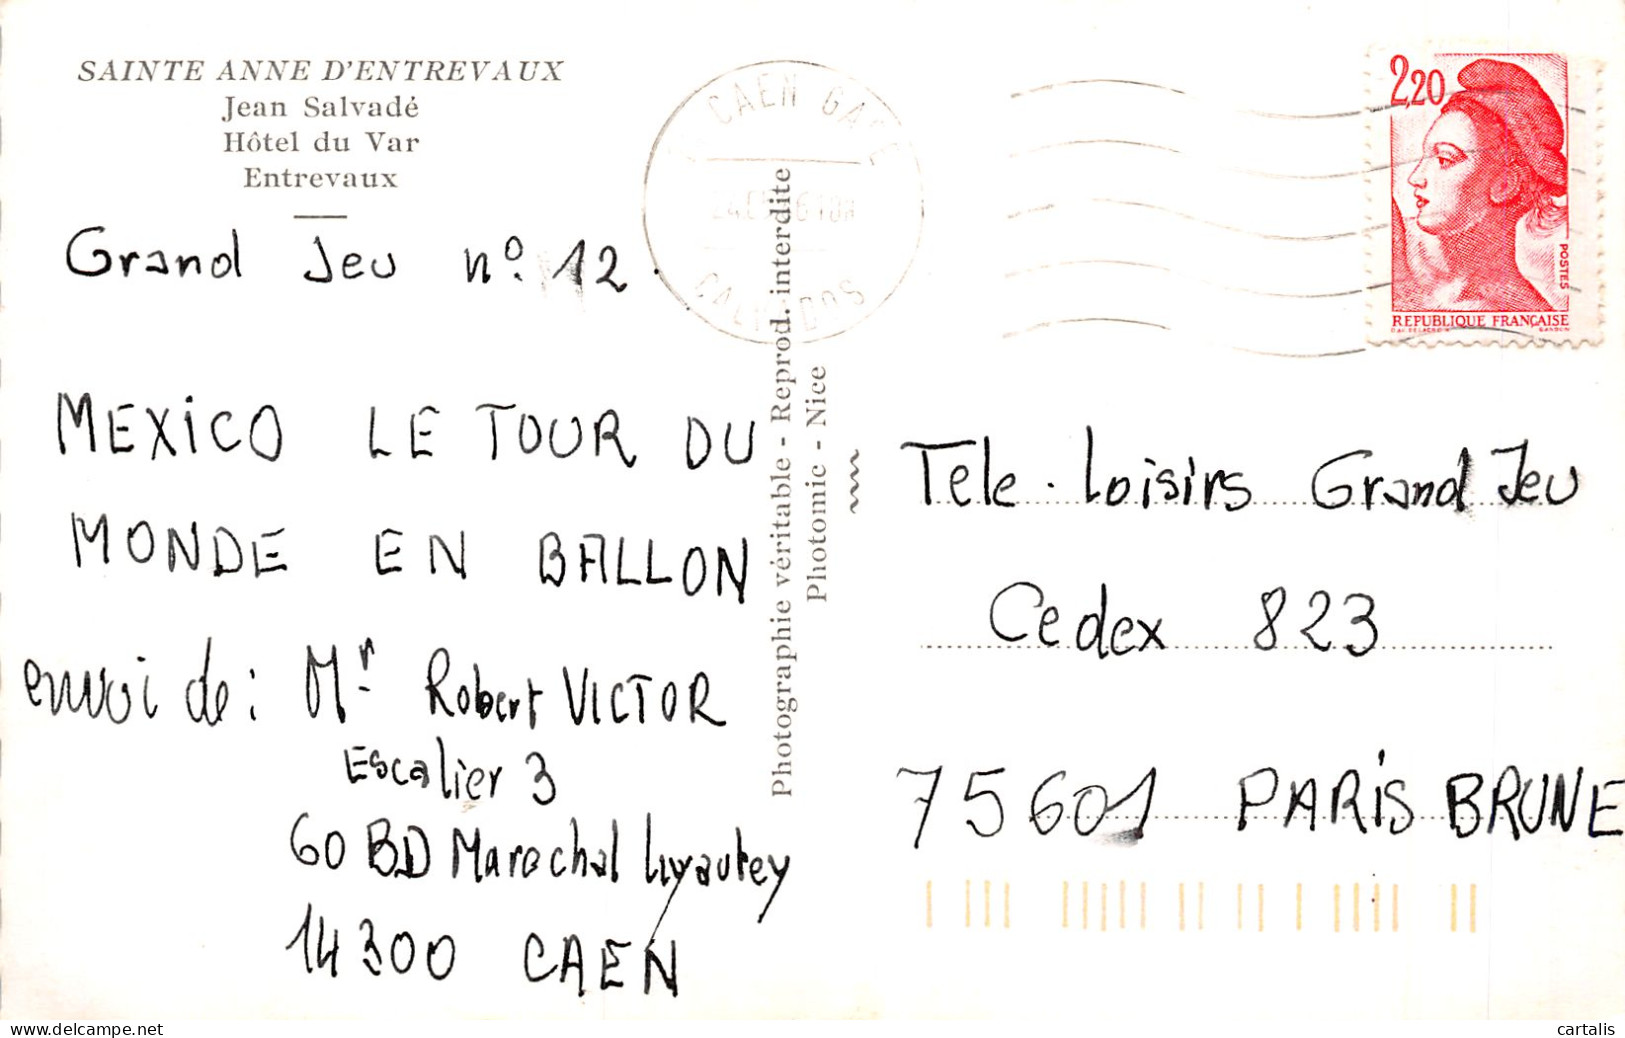 SAINTE ANNE D'ENTREVAUX
Jean Salvadé
Hôtel du Var
Entrevaux
Grand Jeu n° 12
MEXICO LE TOUR DU
MONDE EN BALLON
envoi de : Mr Robert VICTOR
Escalier 3
60 BD Marechal Lyautey
14300 CAEN
Photographie véritable - Reprod. interdite
Photomic - Nice
CAEN GARE
CALVADOS
2,20
POSTES
REPUBLIQUE FRANÇAISE
Tele . Loisirs Grand Jeu
Cedex 823
75601 PARIS BRUNE
delcampe.net
cartalis